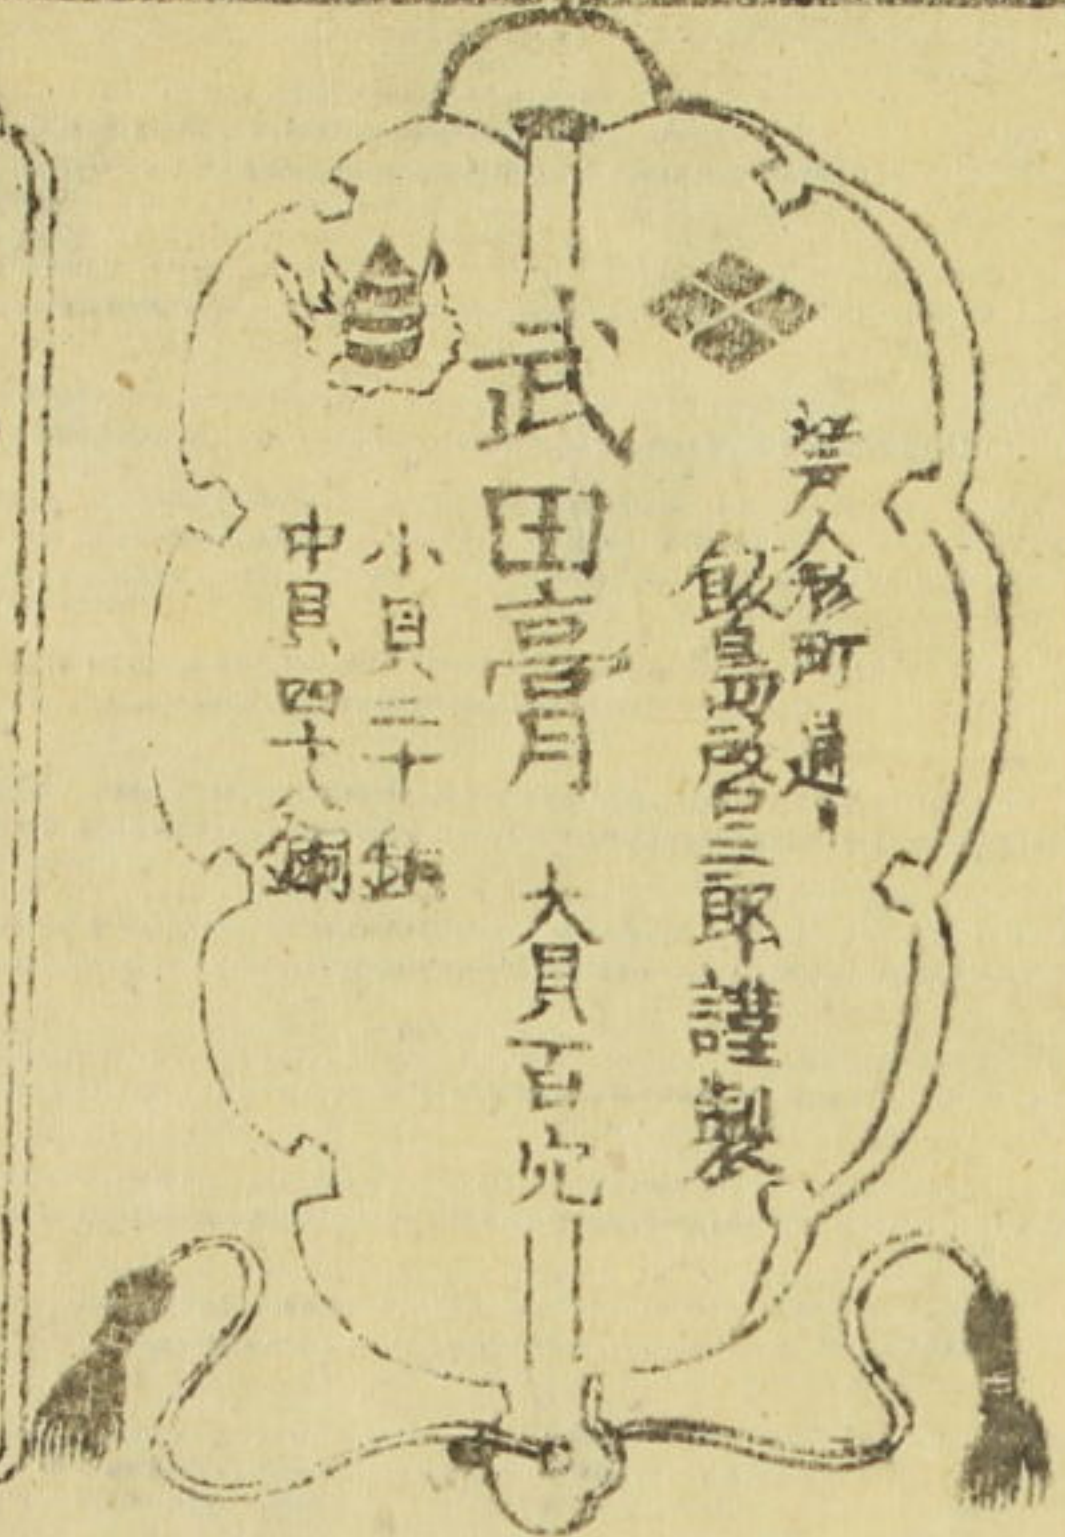 江戸人形町通り
飯島啓三郎謹製
武田膏 大貝百穴
小貝二十銅
中貝四十八銅